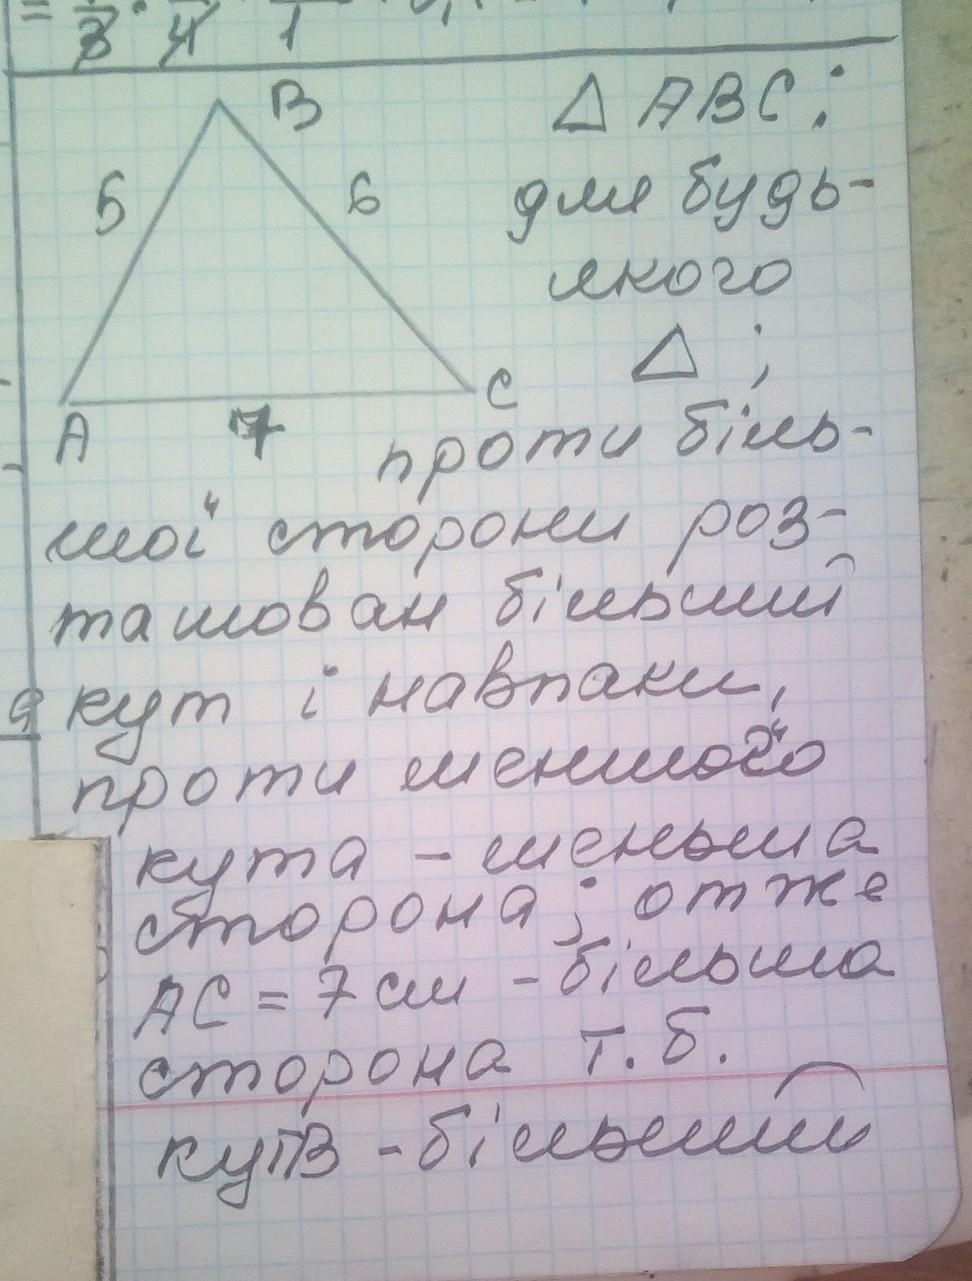 B
△ ABC:
5
6
для будь-
якого
△;
C
A
7
проти біль-
шої сторони роз-
ташован більший
кут і навпаки,
проти меншого
кута - меньша
сторона; отже
AC = 7 см - більша
сторона т.б.
кут B - більший